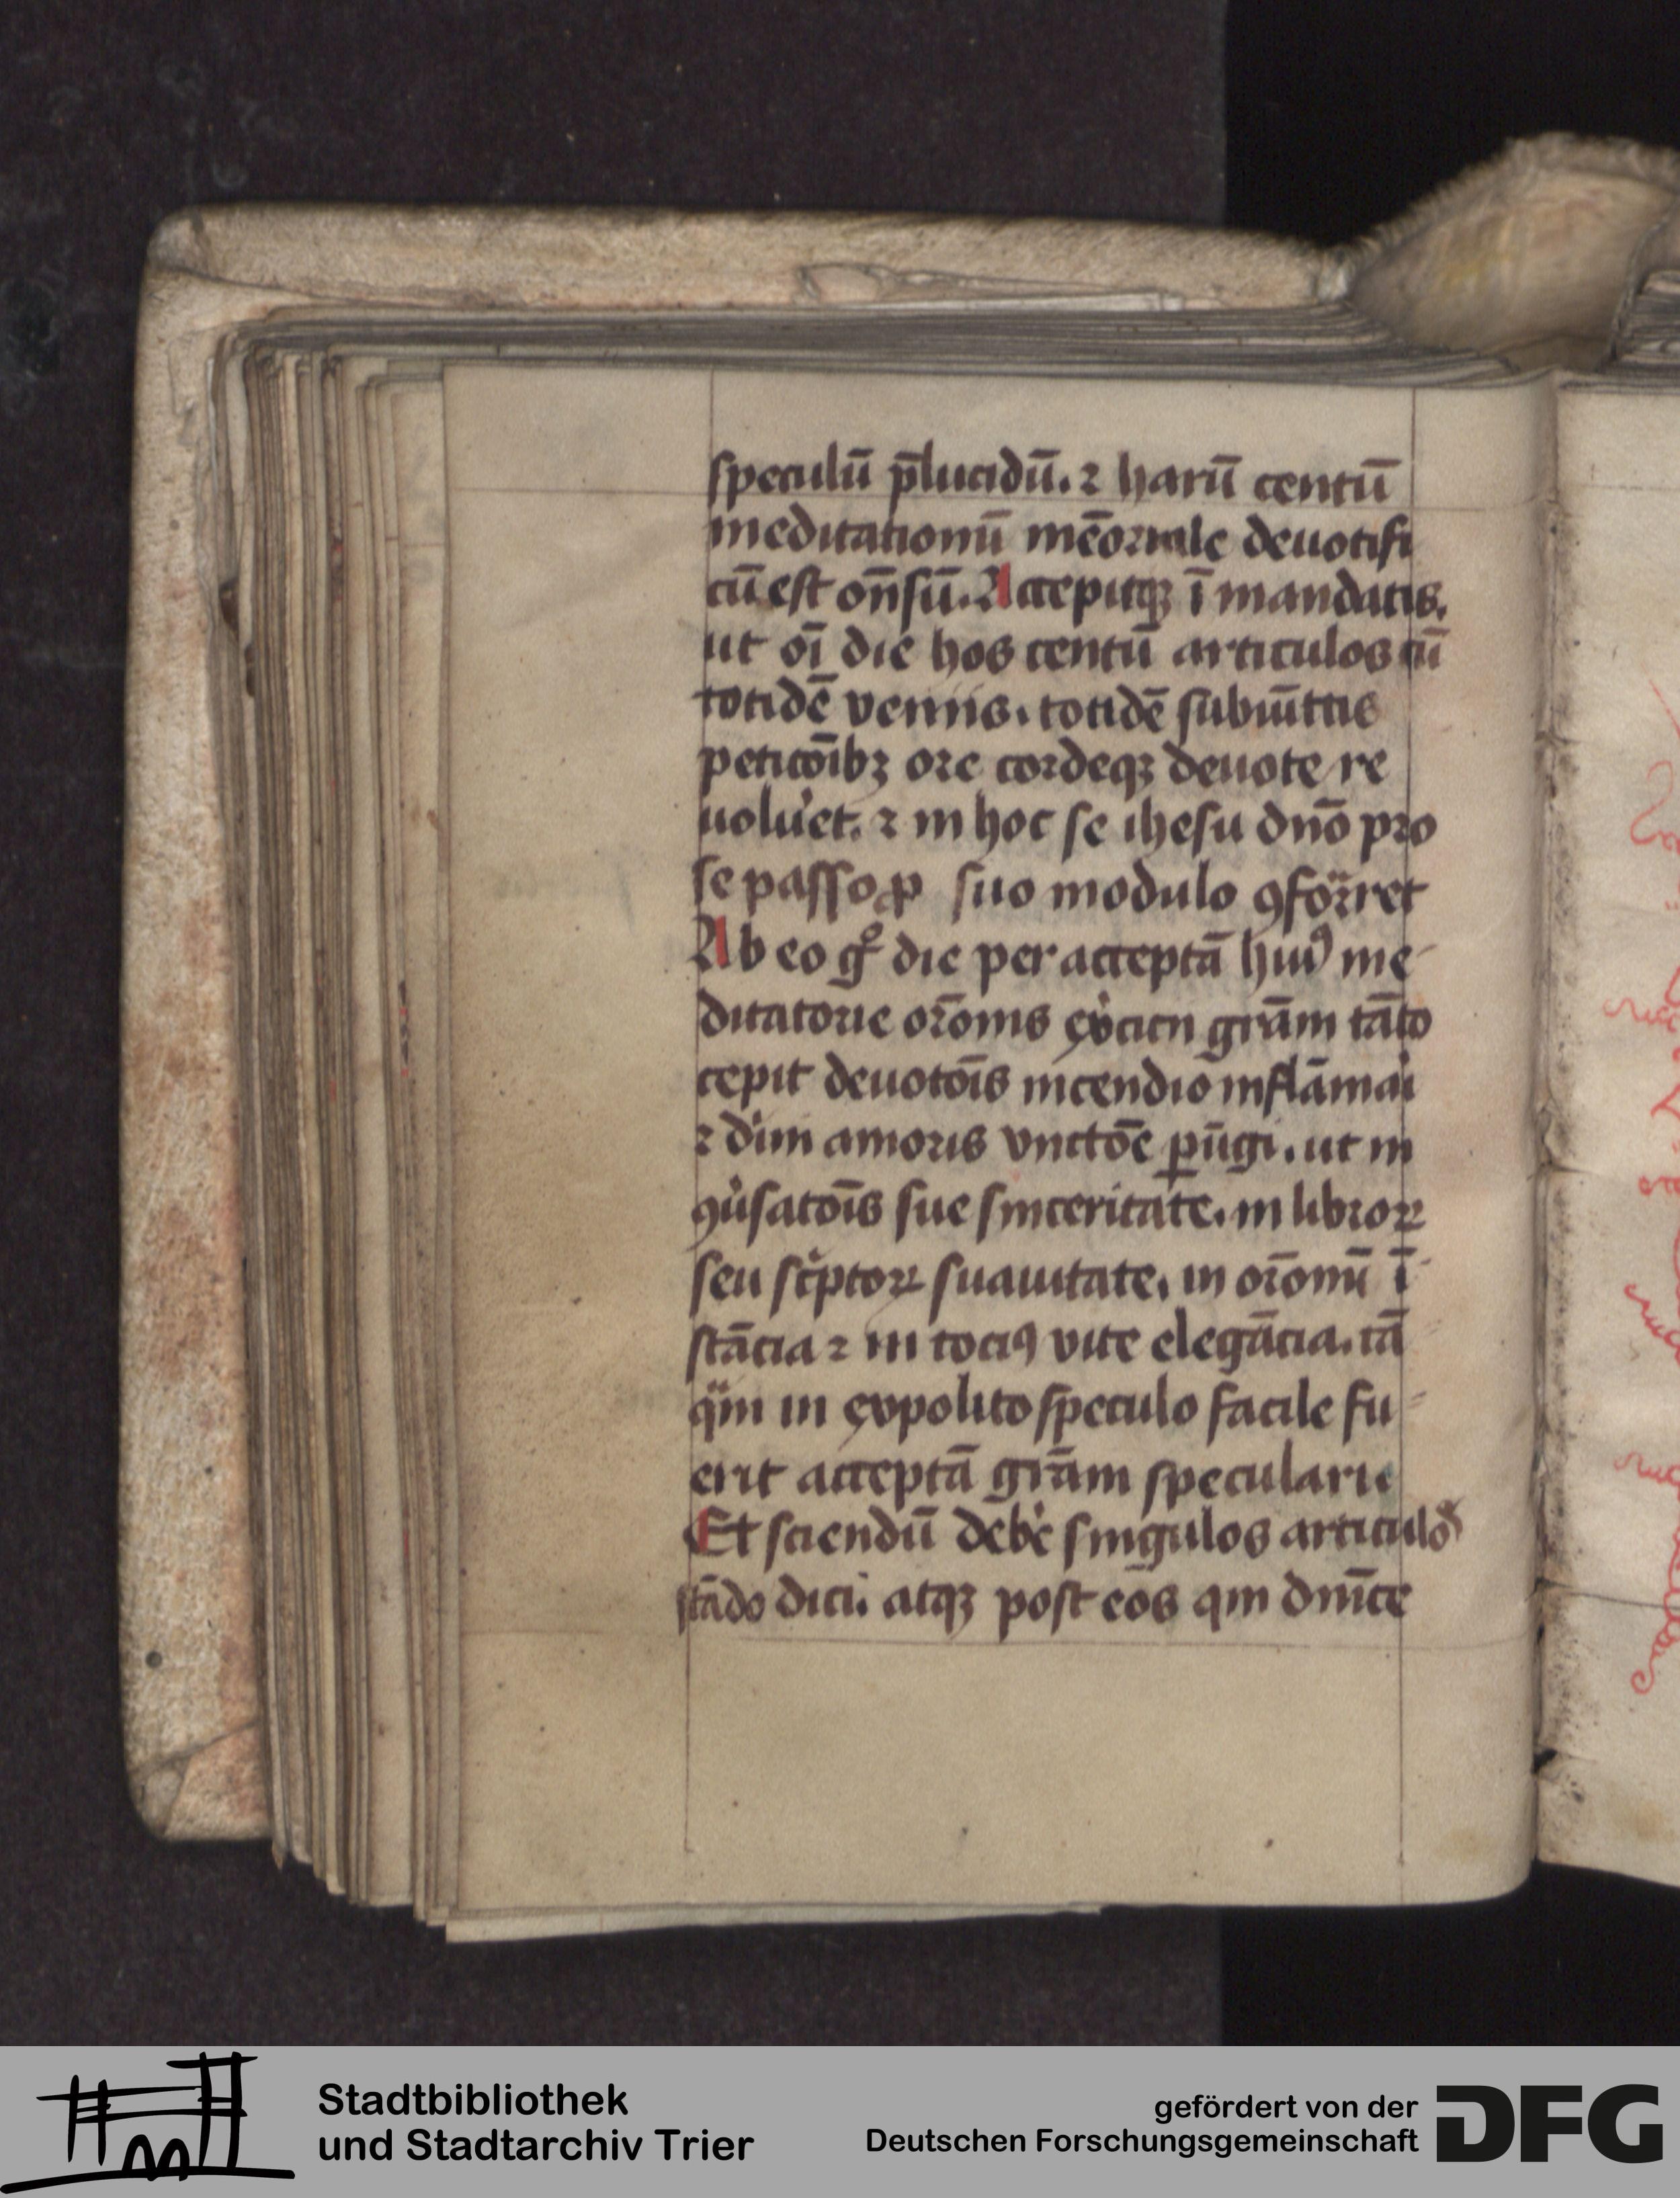 speculū p̄lucidū. ⁊ harū centū
meditationū mēoriale deuotifi
cū est on̄sū. Accepitqꝫ ī mandatis.
ut oī die hos centū articulos cū
totidē veniis. totidē subiūctis
peticōibꝫ ore cordeqꝫ deuote re
uolu͛et. ⁊ in hoc se ihesu dn̄o pro
se passo ꝓ suo modulo ꝯforͣret
Ab eo gͦ die per acceptā huiꝰ me
ditatorie or̄onis exͨicii grām tāto
cepit deuotōis incendio inflāmai͛
⁊ diͥni amoris vnctōe ꝑūgi. ut in
ꝯu͛satōis sue sinceritate. in libroꝝ
seu scͥptoꝝ suauitate. in or̄onū ī
stācia ⁊ in tociꝰ vite elegācia. tā
qͣm in expolito speculo facile fu
erit acceptā grām speculari
Et sciendū debe͛ singulos articulos
stādo dici. atqꝫ post eōs qm dn̄ice
Stadtbibliothek
und Stadtarchiv Trier
gefördert von der
Deutschen Forschungsgemeinschaft
DFG